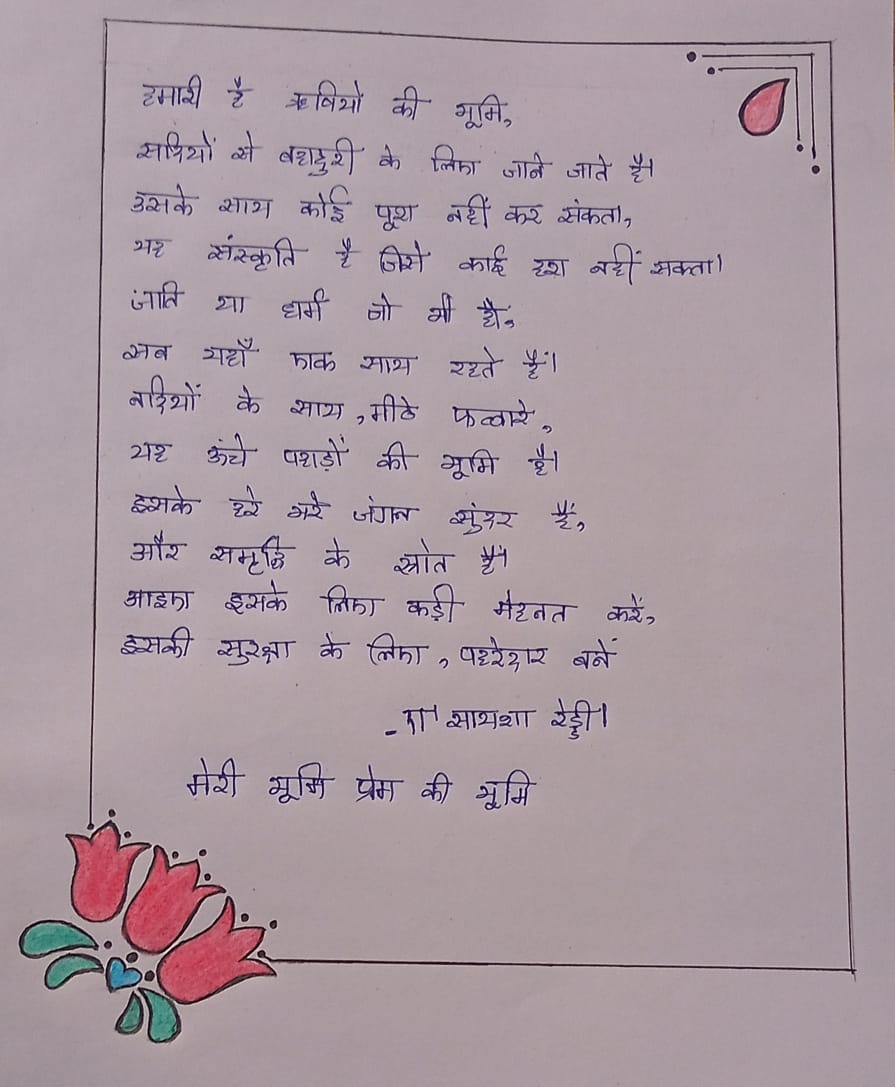 हमारी है ऋषियों की भूमि,
सदियों से बहादुरी के लिए जाने जाते है।
उसके साथ कोई पूरा नहीं कर संकता,
यह संस्कृति है जिसे काई हरा नहीं सकता।
जाति या धर्म जो भी हो,
सब यहाँ एक साथ रहते हैं।
नदियों के साथ, मीठे फव्वारे,
यह ऊंचे पहाड़ों की भूमि है।
इसके हरे भरे जंगल सुंदर हैं,
और समृद्धि के स्रोत हैं।
आइए इसके लिए कड़ी मेहनत करें,
इसकी सुरक्षा के लिए, पहरेदार बनें
सायशा रेड्डी।
मेरी भूमि प्रेम की भूमि